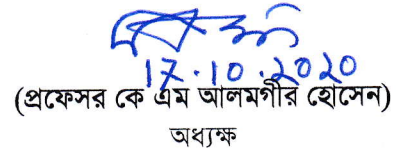 17.10.2020
(প্রফেসর কে এম আলমগীর হোসেন)
অধ্যক্ষ